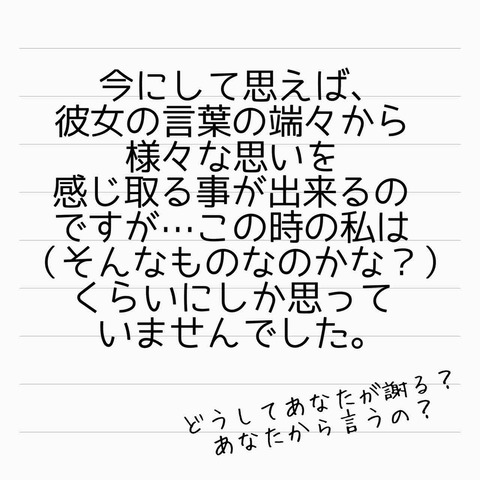 今にして思えば、
彼女の言葉の端々から
様々な思いを
感じ取る事が出来るの
ですが…この時の私は
（そんなものなのかな？）
くらいにしか思って
いませんでした。
どうしてあなたが謝る？
あなたから言うの？